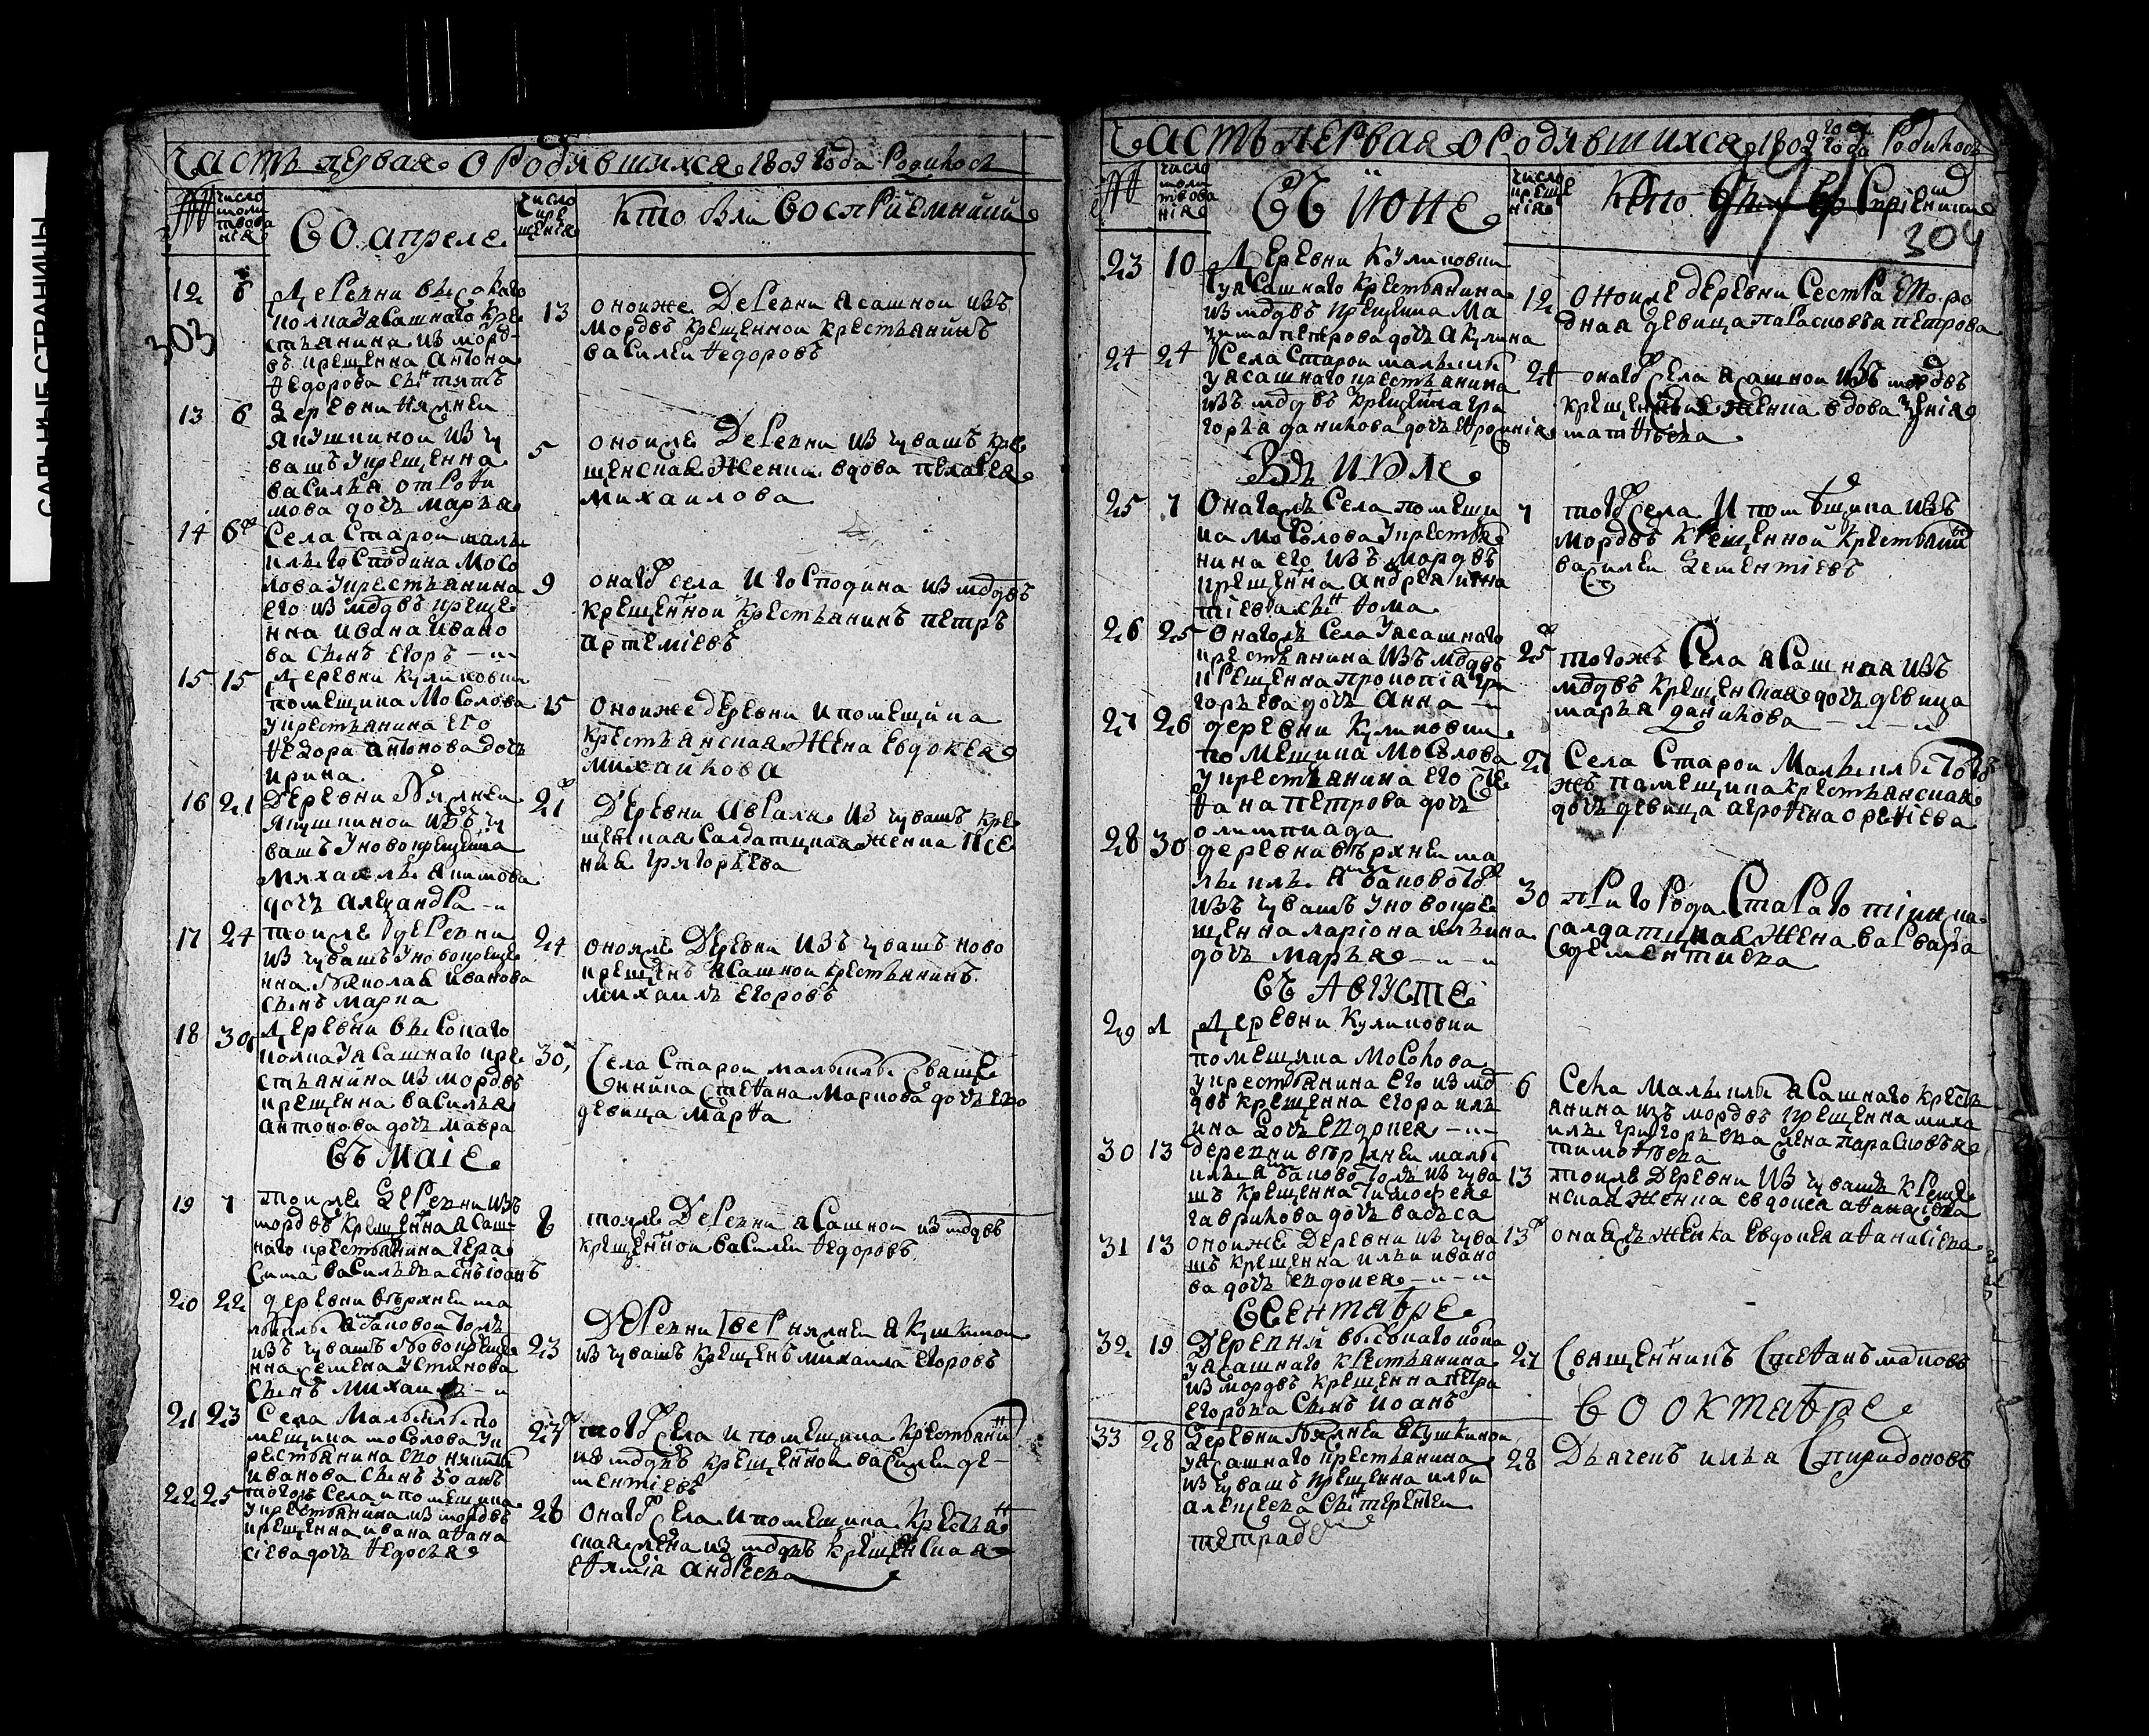 Часть первая о родившихся 1809 года Родилось
число
моли
твова
нія
Во апреле
число
кре
щенія
кто были восприемники
303
12
6
Деревни высокаго
колка Уясашнаго кре
стьянина из морд
въ крещенна Антона
Федорова сынъ
13
оноиже Деревни ясашной изъ
мордвъ крещенной крестьянинъ
василеи Федоровъ
13
6
Деревни Нижней
Якушкиной из чу
вашъ Укрещенна
василья
мова дочь марья
5
оноиже Деревни из чувашъ кре
щенская женка вдова пелагея
михаилова
14
6
Села Старой малы
клы господина Мосо
лова Укрестьянина
его из мордвъ креще
нна ивана ивано
ва сынъ егоръ
9
онагож села и господина из мордвъ
крещенной крестьянинъ петръ
артемиевъ
15
15
Деревни куликовки
помещика Мосолова
укрестьянина его
Федора антонова дочь
ирина
15
оноиже деревни и помещика
крестьянская жена евдокея
михаилова
16
21
Деревни Нижней
якушкиной изъ чу
вашъ Уновокрещенна
михаилы акимова
дочь александра
21
Деревни из чувашъ кре
щенская салдатская женка ксе
ния григорьева
17
24
тоиже деревни
из чувашъ Уновокреще
нна Николая иванова
сынъ марка
24
оноиже деревни изъ чувашъ ново
крещенъ ясашной крестьянинъ
михаилъ егоровъ
18
30
Деревни высокаго
колка Уясашнаго кре
стьянина из мордвъ
крещенна василья
антонова дочь мавра
30
Села Старой малыклы свяще
нника стефана Маркова дочь его
девица марфа
въ маіе
19
7
тоиже деревни изъ
мордвъ крещенна ясаш
наго крестьянина гера
сима васильева снъ іоанъ
8
тоиже Деревни ясашной из мордвъ
крещенной василеи Федоровъ
20
22
деревни верхней ма
изъ чувашъ новокреще
нна семена устинова
сынъ михаилъ
23
Деревни нижней якушкиной
из чувашъ крещенъ михаила егоровъ
21
23
Села Малыклы по
мещика мосолова Ук
рестьянина его никиты
иванова сынъ іоанъ
23
тогож села и помещика крестьянин
из мордвъ крещенной василеи де
ментіевъ
22
25
тогожъ села и помещика
укрестьянина из мордвъ
крещенна ивана афана
сіева дочь федосья
28
онагож села и помещика крестьян
ская жена из мордвъ крещенская
евфимія андреева
Часть первая о родившихся 1809 года Родилось
число
моли
твова
нія
въ июне
число
креще
нія
Кто
304
23
10
Деревни Куликовки
Уясашнаго крестьянина
из мордвъ крещенна ма
ксима петрова дочь акулина
12
оноиже деревни сестра его ро
дная девица парасковья петрова
24
24
Села Старой малыклы
уясашнаго крестьянина
изъ мордвъ крещенна гри
горья данилова дочь
24
онагож села ясашной изъ мордвъ
крещенная женка вдова
матфеева
въ июле
25
7
Онагожъ села помещи
ка мосолова Укрестья
нина его изъ мордвъ
крещенна андрея
сынъ Фома
7
тогож села и помещика изъ
мордвъ крещенной крестьянин
василеи дементіевъ
26
25
Онагожъ села Уясашнаго
крестьянина изъ мордвъ
крещенна прокопія гри
горьева дочь анна
25
тогожъ села ясашная изъ
мордвъ крещенская дочь девица
марья данилова
27
26
деревни куликовки
помещика мосолова
укрестьянина его сте
фана петрова дочь
олимпиада
27
Села Старой Малыклы того
жъ памещика крестьянская
дочь девица
28
30
деревни верхней ма
лыклы
изъ чувашъ уновокре
щенна ларіона ильина
дочь марья
30
пригорода Старато
салдатская жена варвара
дементиева
въ августе
29
1
Деревни куликовки
помещика мосолова
укрестьянина его из мор
двъ крещенна егора иль
ина дочь евдокея
6
села Малыклы ясашнаго кресть
янина изъ мордвъ крещенна миха
илы григорьева жена парасковья
тимофеева
30
13
деревни верхней малы
клы из чува
шъ крещенна тимофея
гаврилова дочь васъса
13
тоиже деревни из чувашъ креще
нская женка евдокея афанасіева
31
13
оноиже деревни из чува
шъ крещенна ильи ивано
ва дочь евдокея
13
онаяжъ женка евдокея афанасіева
Всентябре
32
19
Деревни высокаго колка
уясашнаго крестьянина
из мордвъ крещенна петра
егорова сынъ иоанъ
27
Священникъ Стефанъ марковъ
Во октябре
33
28
Деревни Нижней Якушкиной
уясашнаго крестьянина
из чувашъ крещенна ильи
алексеева сынъ терентеи
28
Дьяченъ илья Спиридоновъ